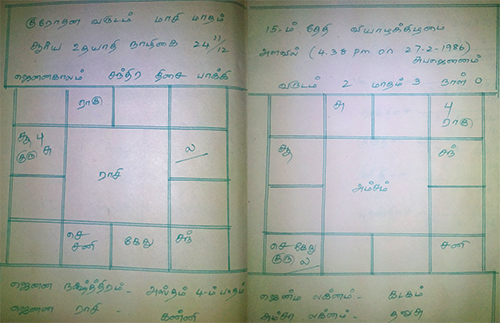 குரோதன வருடம் மாசி மாதம்
15-ம் தேதி வியாழக்கிழமை
சூரிய உதயாதி நாழிகை 24 11/12
அளவில் (4.38 pm on 27-2-1986)
சுபஜனனம்
ஜெனனகாலம் சந்திர திசை பாக்கி
வருடம் 2 மாதம் 3 நாள் 0
ராகு
சூ பு
குரு சு
ல
ராசி
செ
சனி
கேது
சந்
சு
பு
ராகு
சூ
சந்
அம்சம்
செ கேது
குரு ல
சனி
ஜெனன நஷேத்திரம் - அஸ்தம் 4-ம் பாதம்
ஜெனன ராசி - கன்னி
ஜென்ம லக்னம் - கடகம்
அம்ச லக்னம் - தனுசு